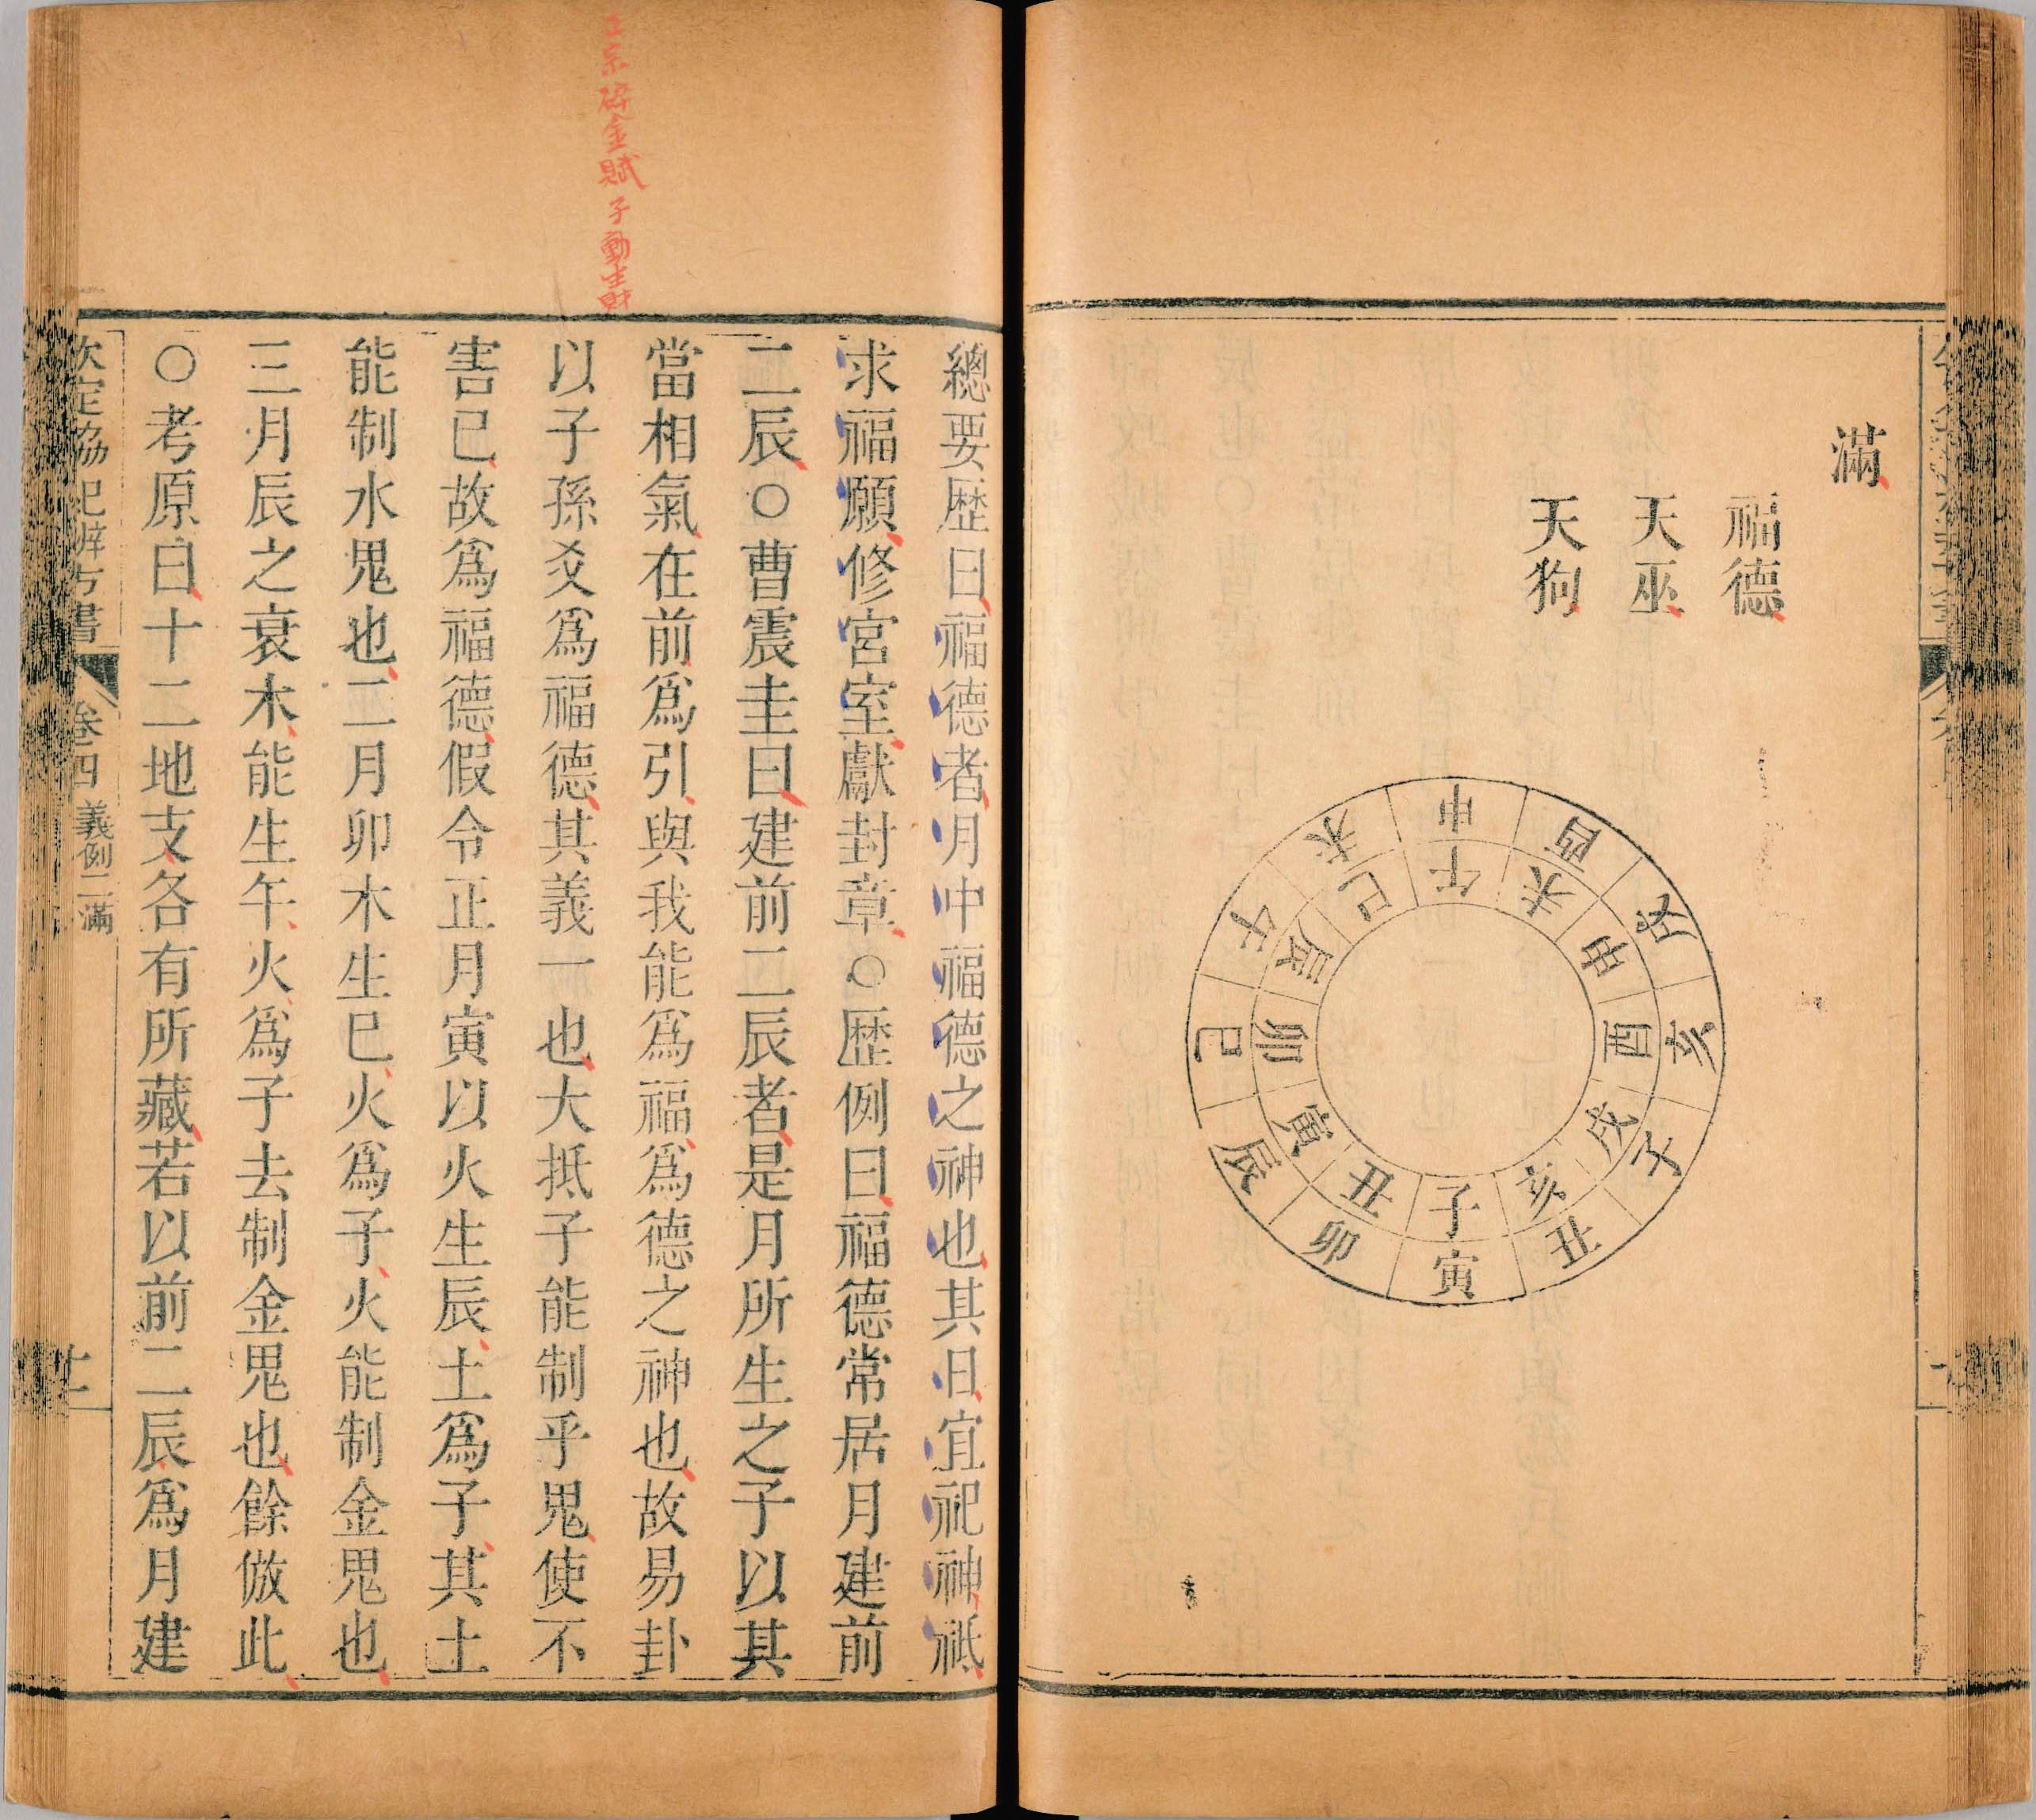 滿
福德
天巫
天狗
申
酉
戌
亥
子
丑
寅
卯
辰
巳
午
未
午
未
申
酉
戌
亥
子
丑
寅
卯
辰
巳
正宗碎金賦 子動生財
總要歷曰福德者月中福德之神也其日宜祀神祗
求福願修宮室獻封章○歷例曰福德常居月建前
二辰○曹震圭曰建前二辰者是月所生之子以其
當相氣在前爲引與我能爲福爲德之神也故易卦
以子孫爻爲福德其義一也大抵子能制乎鬼使不
害已故爲福德假令正月寅以火生辰土爲子其土
能制水鬼也二月卯木生巳火爲子火能制金鬼也
三月辰之衰木能生午火爲子去制金鬼也餘倣此
○考原曰十二地支各有所藏若以前二辰爲月建
欽定協紀辨方書 卷四 義例二滿 十一